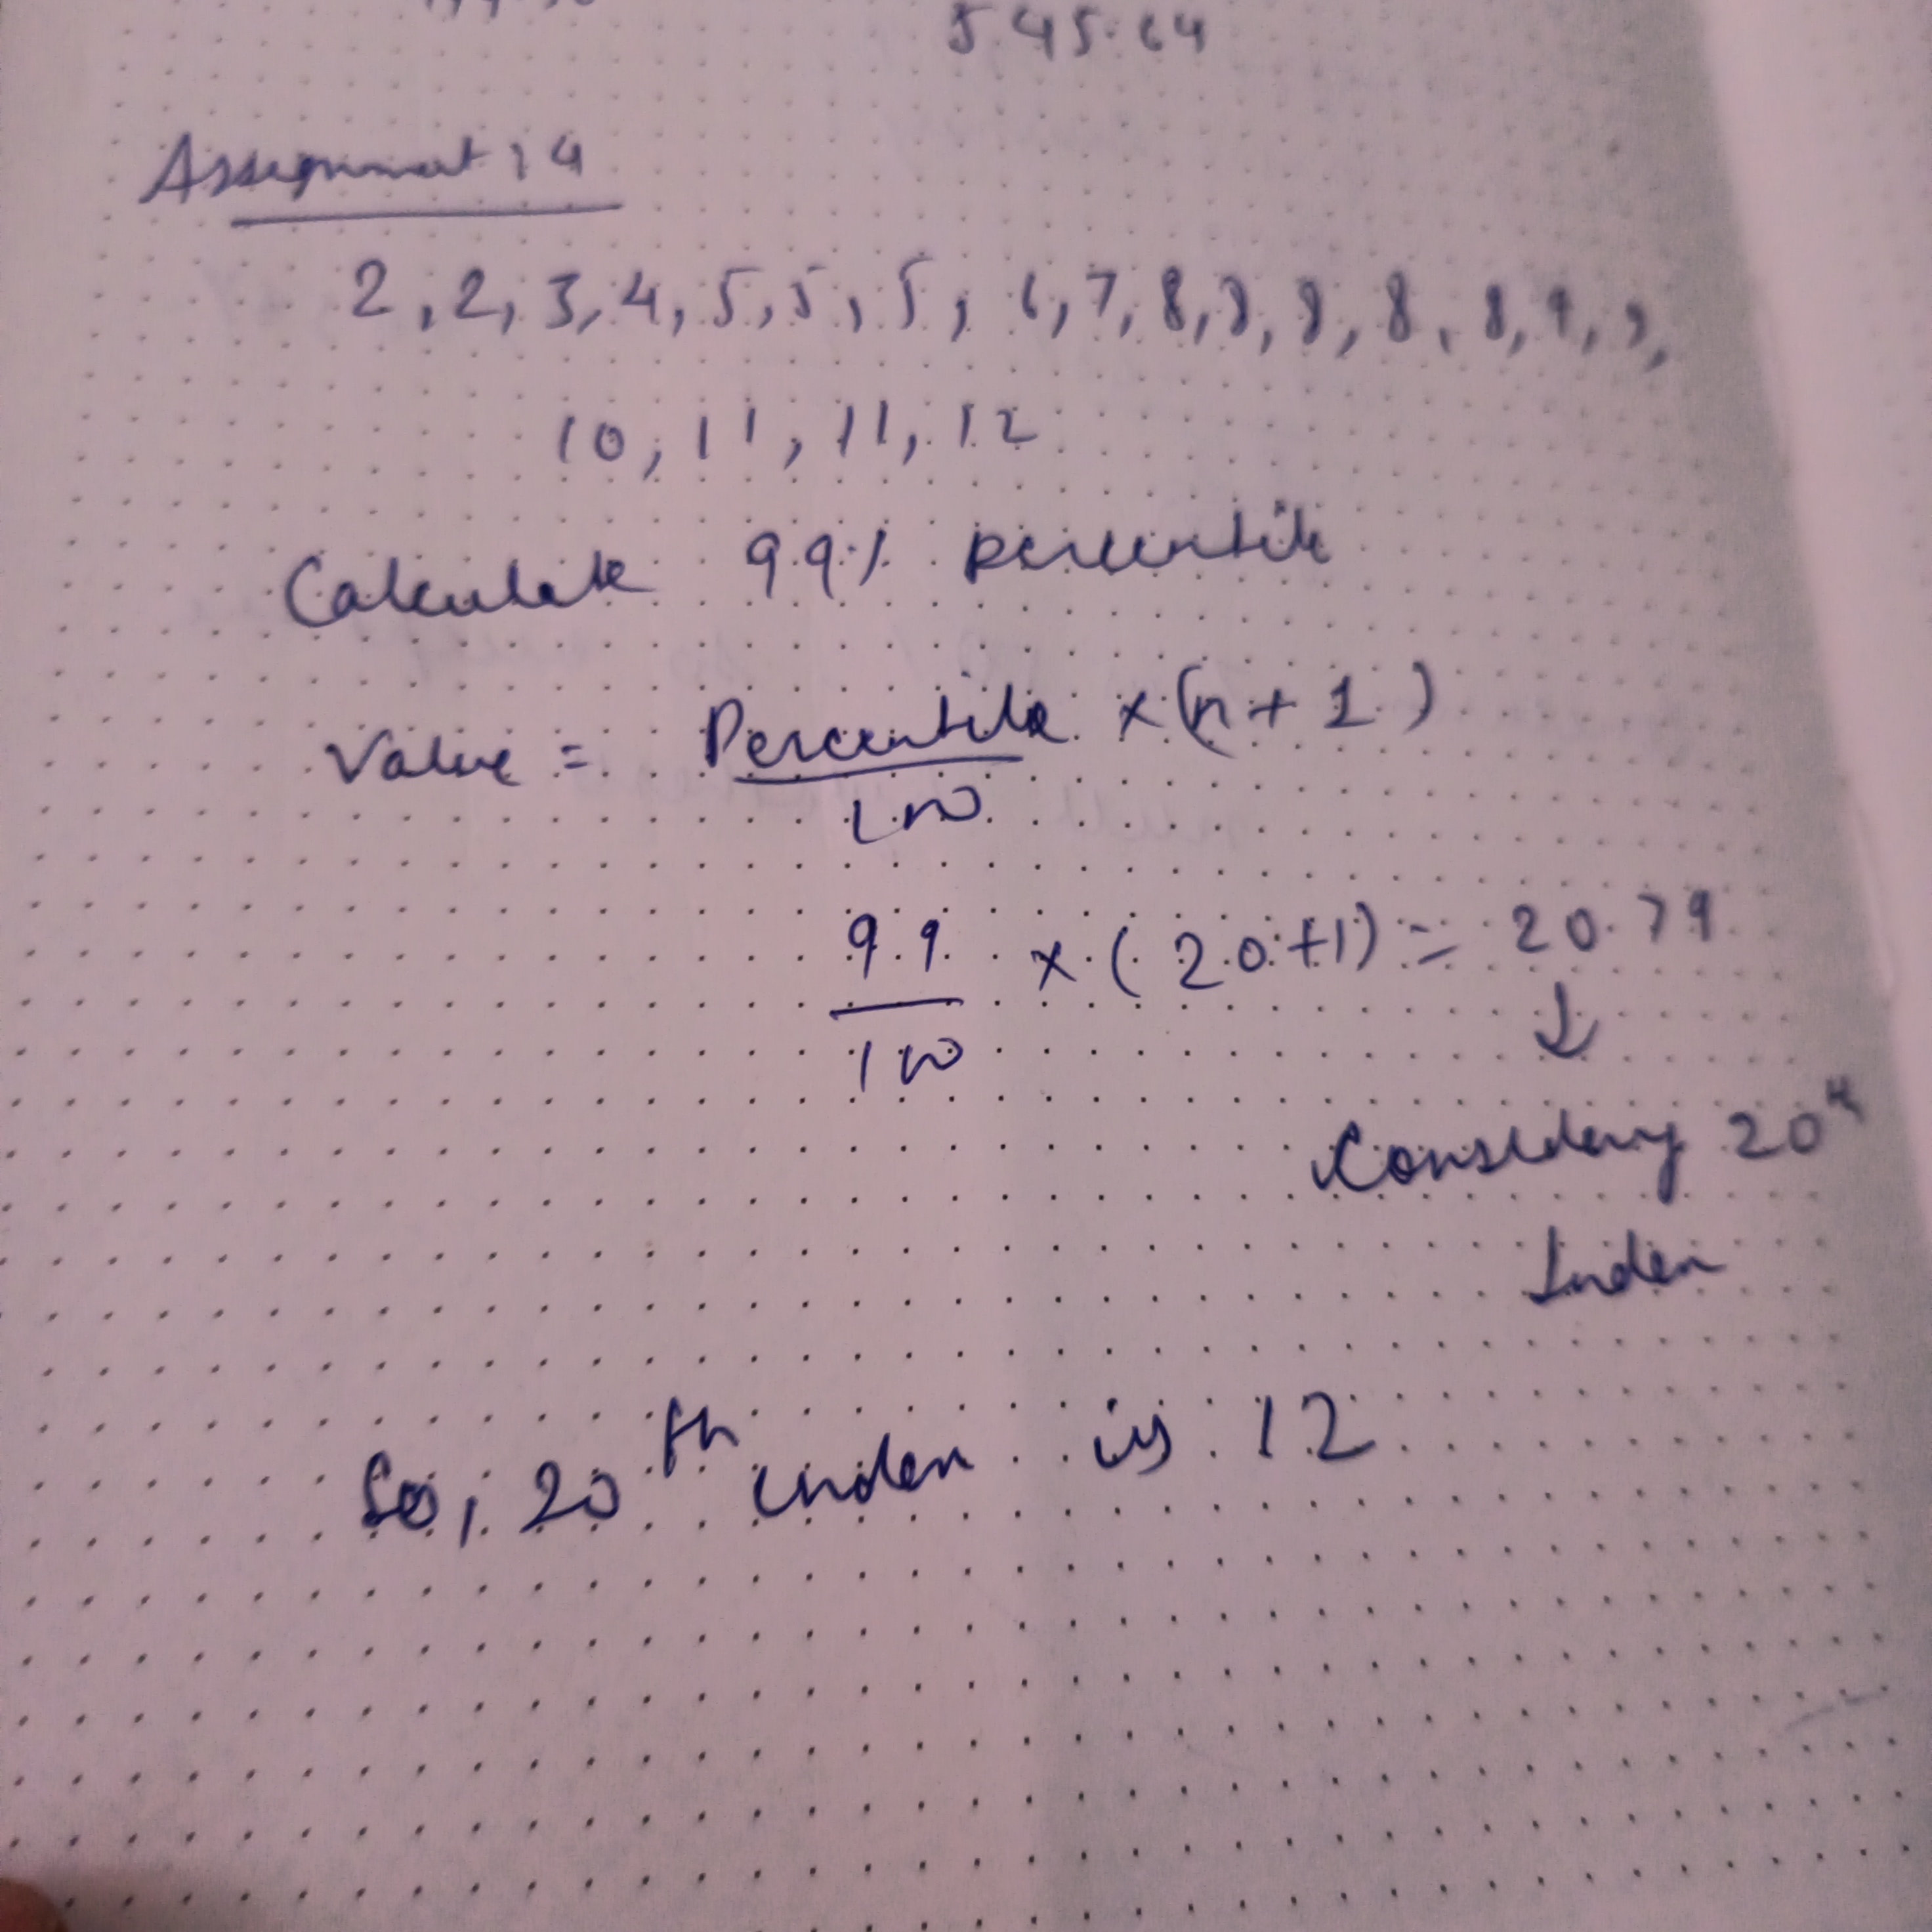 545.64
Assignment 14
2, 2, 3, 4, 5, 5, 5, 6, 7, 8, 8, 8, 8, 8, 9, 9,
10, 11, 11, 12
Calculate 99% percentile
Value = Percentile × (n + 1)
100
99 × (20+1) = 20.79
100
↓
Considering 20th
Index
So, 20th index is 12